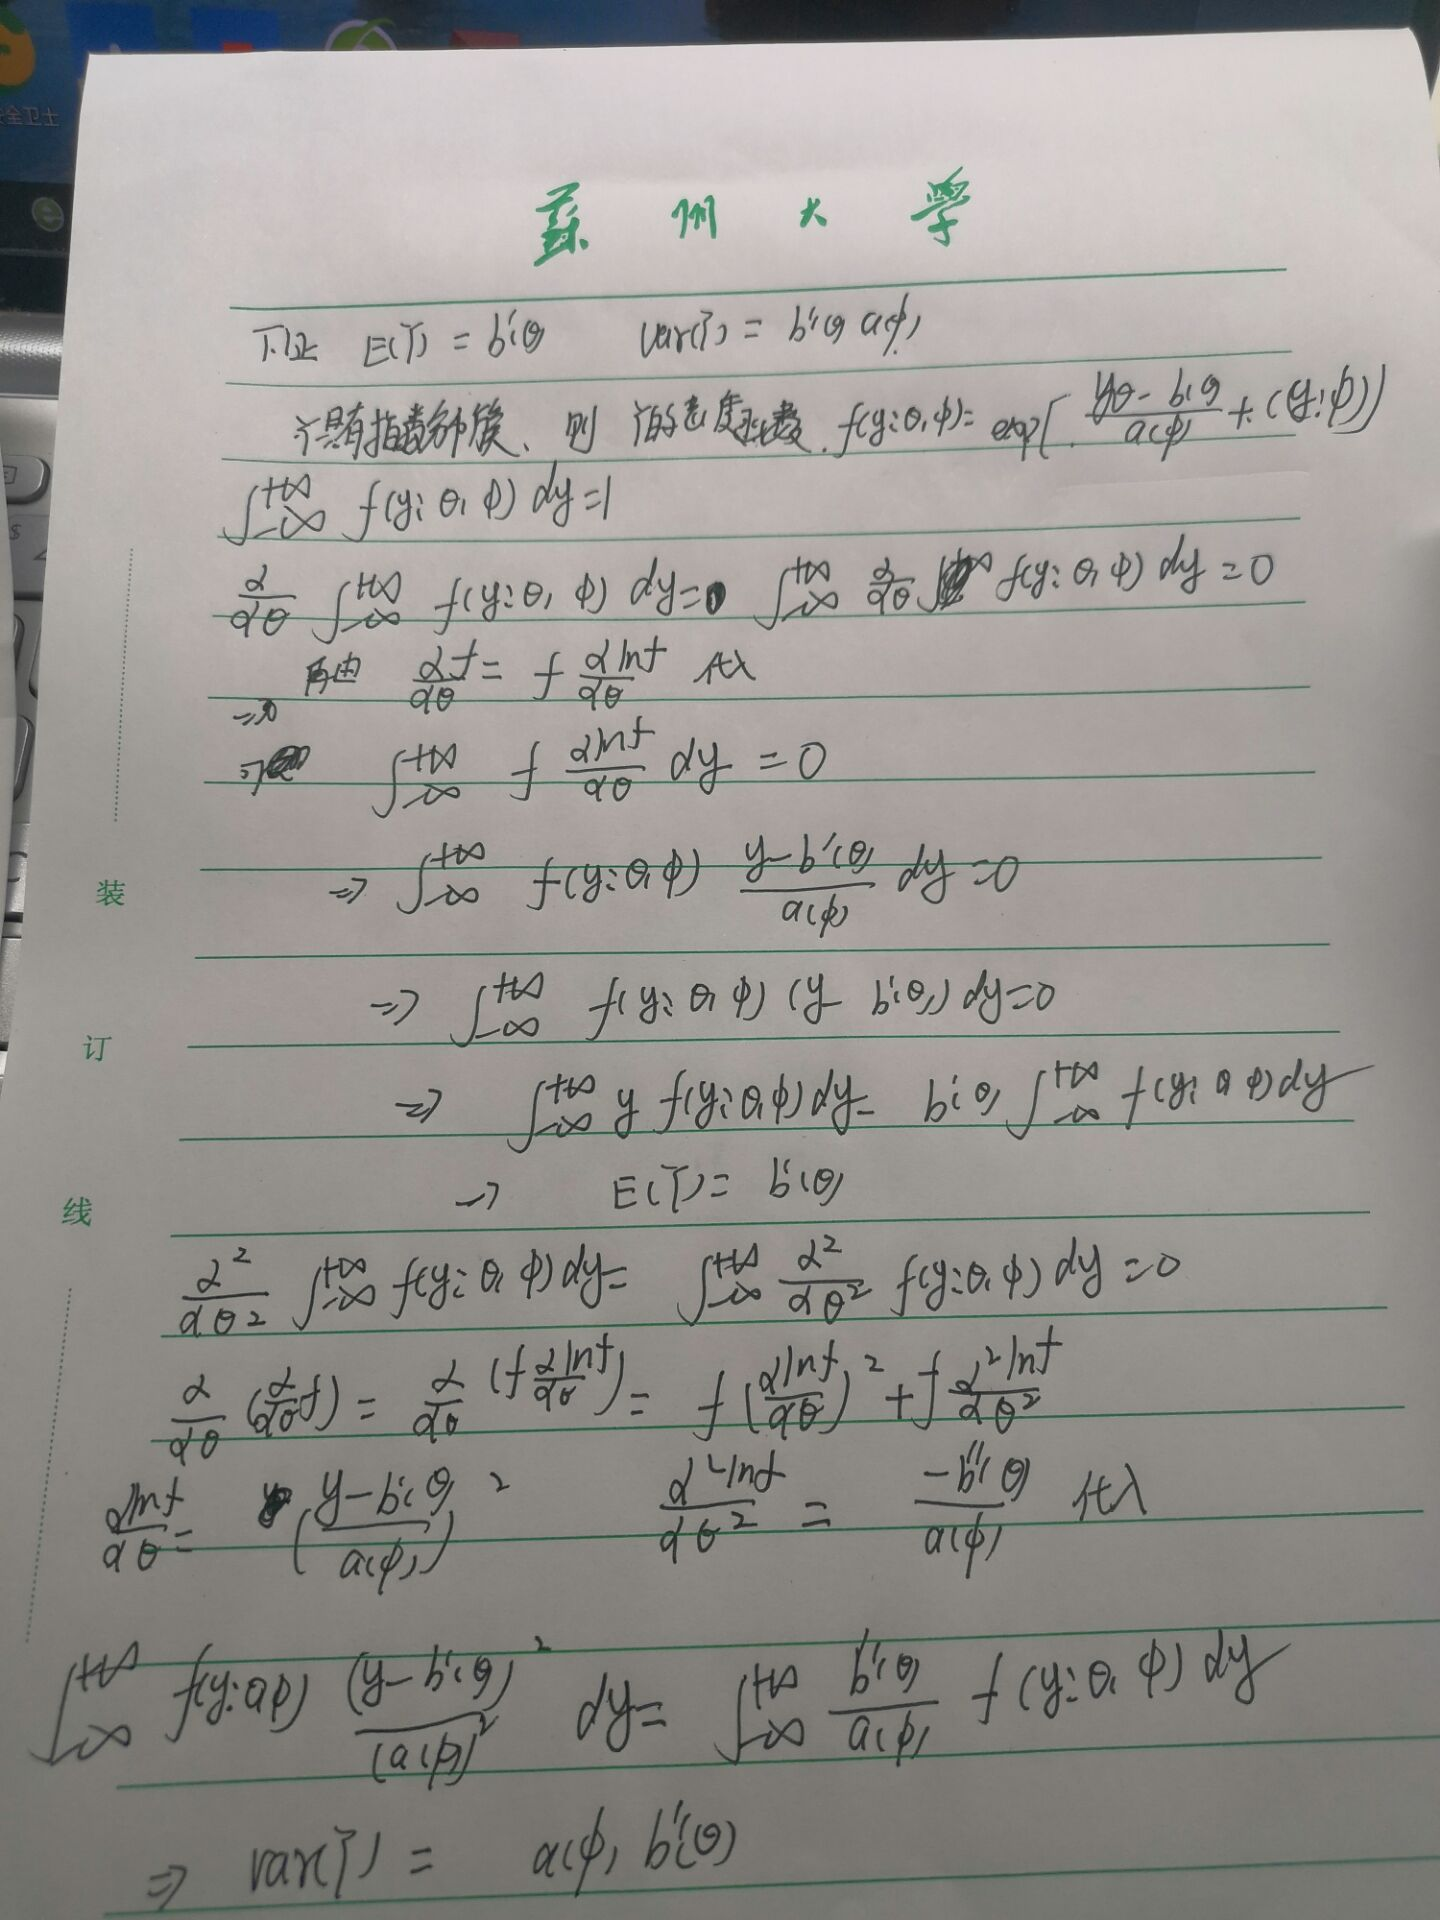 全卫士
蘇州大學
下证 E(Y) = b'(θ) Var(Y) = b''(θ) a(φ)
Y具有指数分布族、则 Y的密度函数. f(y;θ,φ)= exp[ \frac{yθ - b(θ)}{a(φ)} + c(y;φ)]
∫_{-∞}^{+∞} f(y;θ,φ) dy=1
\frac{∂}{∂θ} ∫_{-∞}^{+∞} f(y;θ,φ) dy=0 ∫_{-∞}^{+∞} \frac{∂}{∂θ} f(y;θ,φ) dy=0
再由 \frac{∂f}{∂θ} = f \frac{∂lnf}{∂θ} 代入
⇒
⇒ ∫_{-∞}^{+∞} f \frac{∂lnf}{∂θ} dy = 0
装
⇒ ∫_{-∞}^{+∞} f(y;θ,φ) \frac{y-b'(θ)}{a(φ)} dy=0
⇒ ∫_{-∞}^{+∞} f(y;θ,φ) (y- b'(θ)) dy=0
订
⇒ ∫_{-∞}^{+∞} y f(y;θ,φ) dy= b'(θ) ∫_{-∞}^{+∞} f(y;θ,φ) dy
⇒ E(Y) = b'(θ)
线
\frac{∂^2}{∂θ^2} ∫_{-∞}^{+∞} f(y;θ,φ) dy= ∫_{-∞}^{+∞} \frac{∂^2}{∂θ^2} f(y;θ,φ) dy=0
\frac{∂}{∂θ} (\frac{∂}{∂θ}f) = \frac{∂}{∂θ} (f \frac{∂lnf}{∂θ}) = f (\frac{∂lnf}{∂θ})^2 + f \frac{∂^2lnf}{∂θ^2}
\frac{∂lnf}{∂θ} = (\frac{y-b'(θ)}{a(φ)})^2 \frac{∂^2lnf}{∂θ^2} = \frac{-b''(θ)}{a(φ)} 代入
∫_{-∞}^{+∞} f(y;θ,φ) \frac{(y-b'(θ))^2}{(a(φ))^2} dy= ∫_{-∞}^{+∞} \frac{b''(θ)}{a(φ)} f(y;θ,φ) dy
⇒ var(Y) = a(φ) b''(θ)